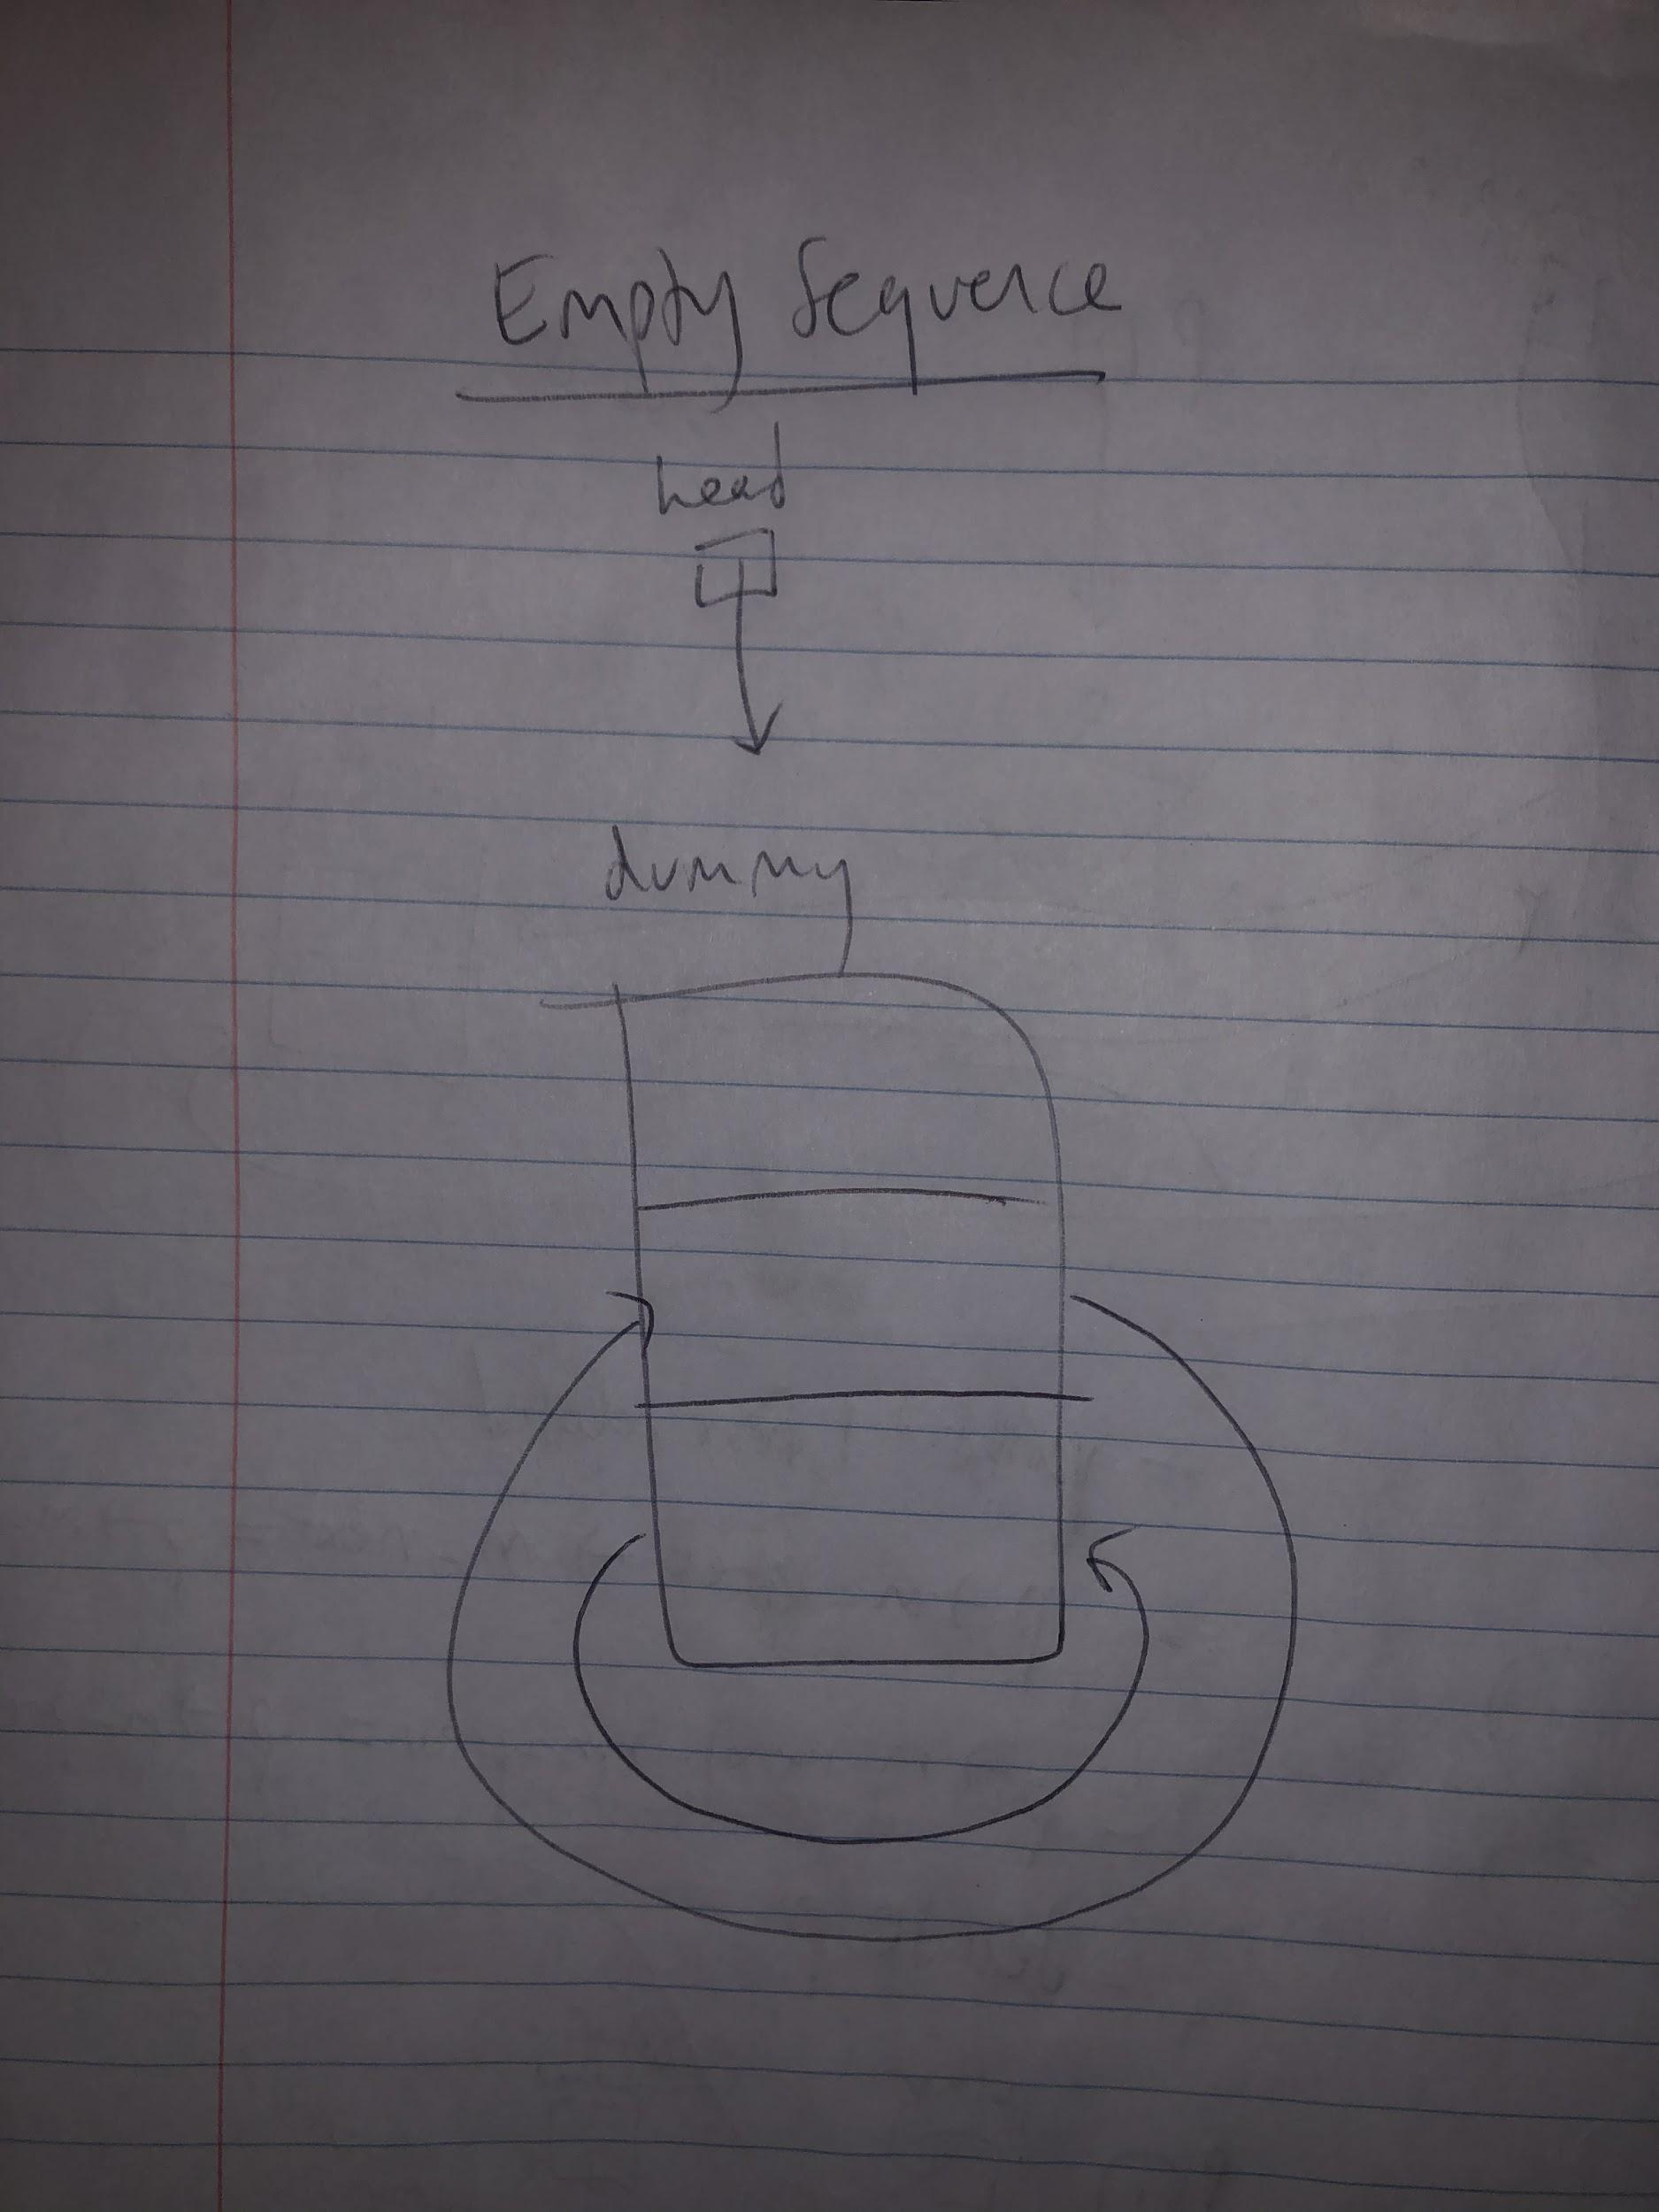 Empty Sequence
head
dummy